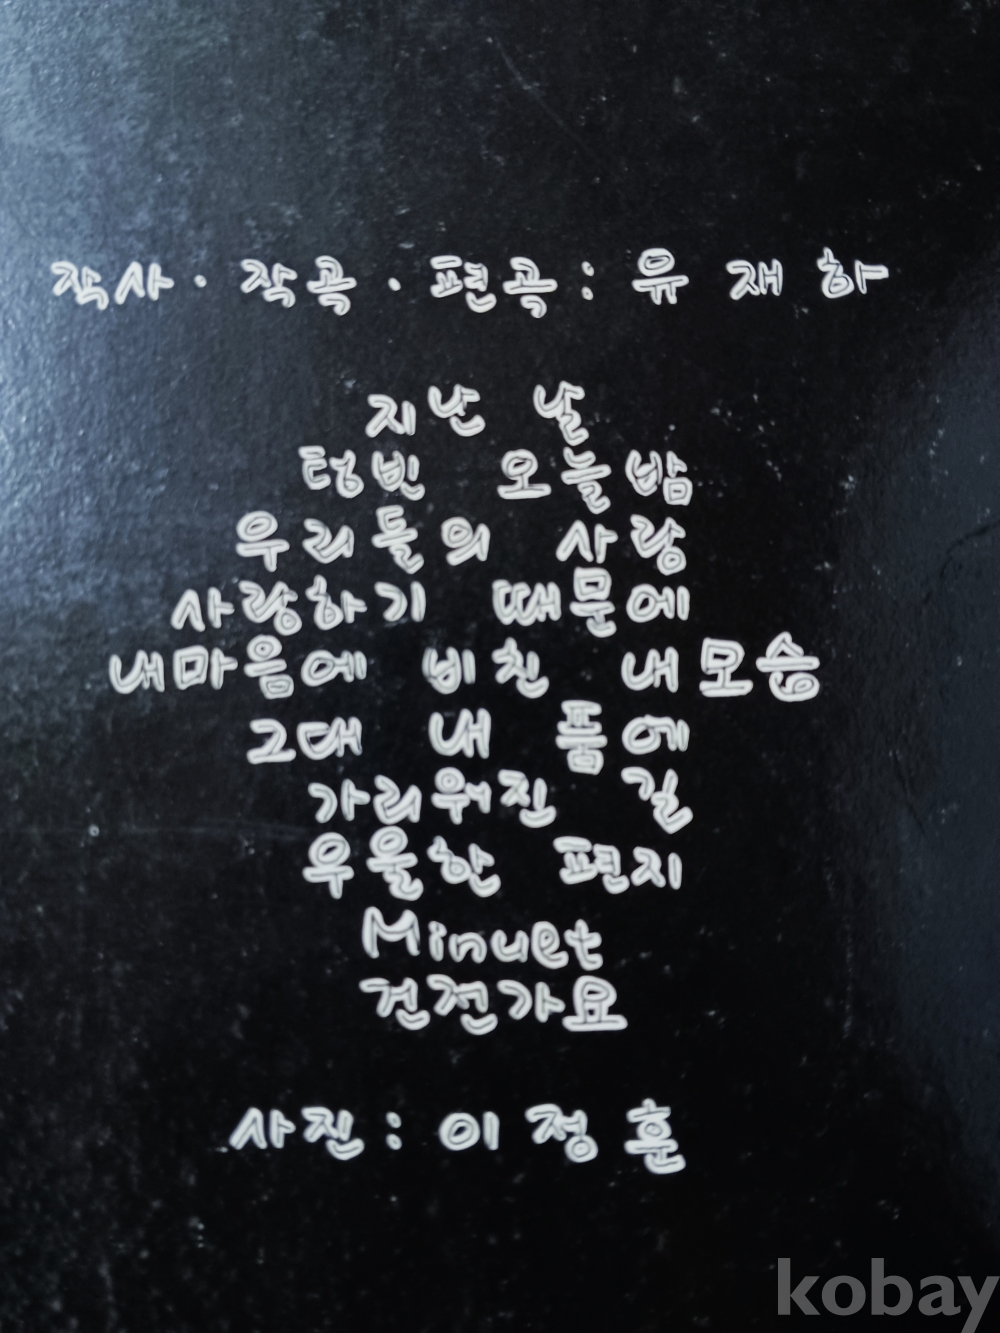 작사 · 작곡 · 편곡 : 유 재 하
지난 날
텅빈 오늘밤
우리들의 사랑
사랑하기 때문에
내마음에 비친 내모습
그대 내 품에
가리워진 길
우울한 편지
Minuet
건전가요
사진 : 이 정 훈
kobay